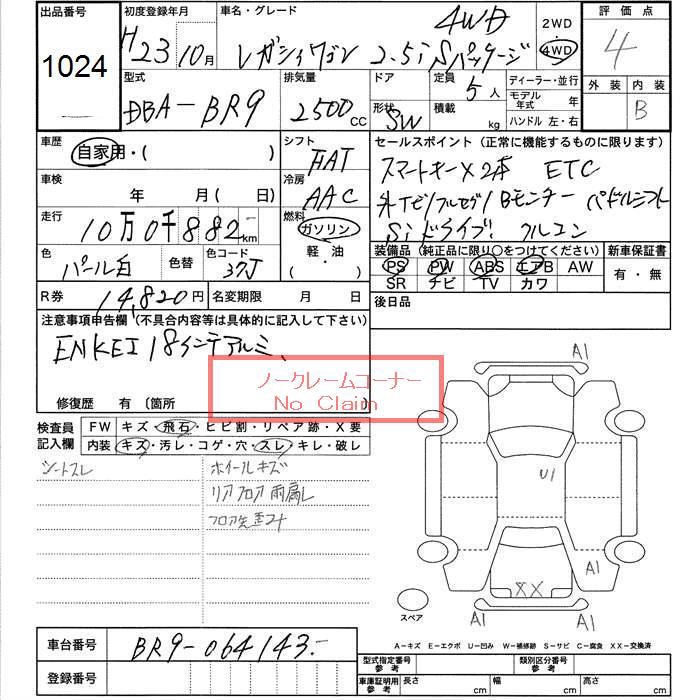 出品番号
1024
初度登録年月
H23年10月
車名・グレード
4WD
レガシィワゴン 2.5i Sパッケージ
2WD
4WD
評価点
4
外装 内装
B
型式
DBA-BR9
排気量
2500cc
ドア
形状
SW
定員
5人
積載
kg
ディーラー・並行
モデル年式 年
ハンドル 左・右
車歴
自家用・( )
シフト
FAT
車検
年 月( 日)
冷房
AAC
走行
10万0千882km
燃料
ガソリン
軽・油
( )
色
パール白
色替
色コード
37J
セールスポイント(正常に機能するものに限ります)
スマートキー×2本 ETC
外TEビ/フルセグ/Bモニター パドルシフト
Siドライブ! クルコン
装備品(純正品に限り○をつけてください)
新車保証書
PS PW ABS エアB AW
SR チビ TV カワ
有・無
R券
14,820円
名変期限 月 日
後日品
注意事項申告欄(不具合内容等は具体的に記入して下さい)
ENKEI 18インチアルミ、
ノークレームコーナー
No Claim
修復歴 有(箇所 )
検査員記入欄
FW キズ・飛石・ヒビ割・リペア跡・X要
内装 キズ・汚レ・コゲ・穴・スレ・キレ・破レ
シートスレ
ホイールキズ
リアフロア雨漏レ
フロア先歪ミ
A1
U1
A1
XX
A1
A1
スペア
A-キズ E-エクボ U-凹み W-補修跡 S-サビ C-腐食 XX-交換済
車台番号
BR9-064143.-
登録番号
型式指定番号 参考
類別区分番号 参考
車庫証明用 参考
長さ cm
幅 cm
高さ cm